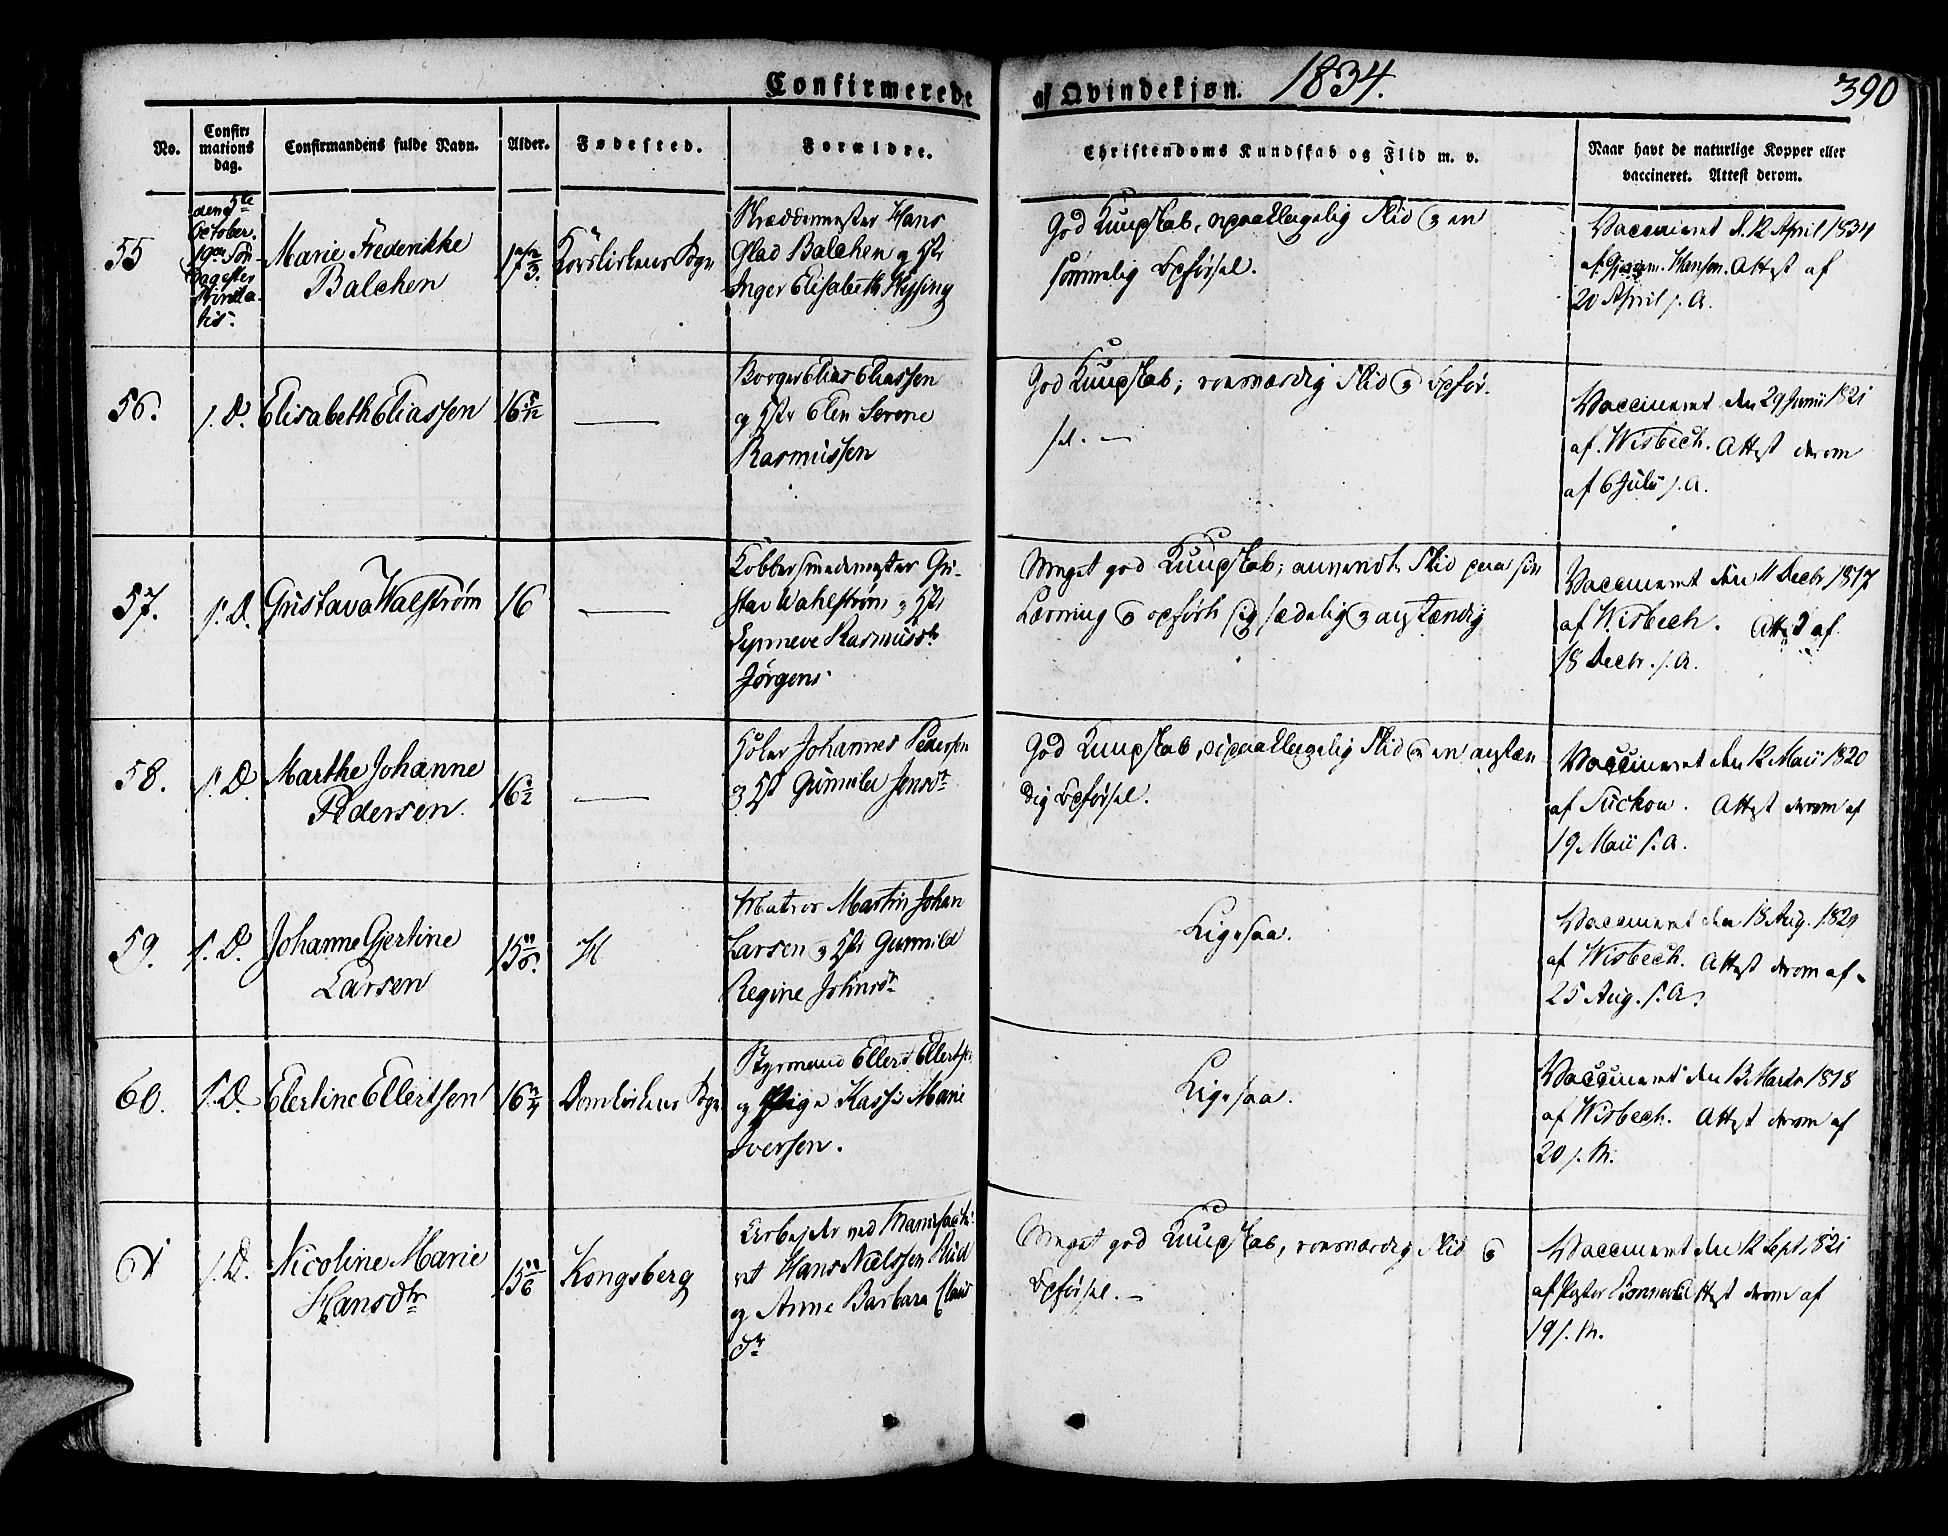 Confirmerede af Qvindekjøn. 1834. 390
No. Confirmations dag. Confirmandens fulde Navn. Alder. Fødested. Forældre. Christendoms Kundskab og Flid m. v. Naar havt de naturlige Kopper eller vaccineret. Attest derom.
55
den 5te
October
19de Søn-
dag efter
Trinita-
tis.
Marie Frederikke
Balchen
17 2/3.
Korskirkens Sogn
Skreddermester Hans
Glad Balchen og Hstr
Inger Elisabeth Hysing
God Kundskab, upaaklagelig Flid og en
sømmelig Opførsel.
Vaccineret d. 12 April 1834
af Hanson. Attest af
20 April s. A.
56.
s. D.
Elisabeth Eliassen
16 5/12
Borger Elias Eliassen
og Hstr Elen Serene
Rasmussen
God Kundskab; roesværdig Flid og Opfør-
sel. —
Vaccineret den 29 Junii 1821
af Wisbech. Attest derom
af 6 Julii s. A.
57.
s. D.
Gustava Walstrøm
16
Kobbersmedemester Gu-
stav Wahlstrøm og Hstr
Synneve Rasmusdr
Jørgens
Meget god Kundskab; anvendte Flid paa sin
Lærning og opførte sig sædelig og anstændig
Vaccineret den 11 Decbr 1817
af Wisbech. Attest af
18 Decbr. s. A.
58.
s. D.
Marthe Johanne
Pedersen
16 1/2
Johannes Pedersen
og Hstr Gunnild Jensdr
God Kundskab, upaaklagelig Flid og en anstæn-
dig Opførsel.
Vaccineret den 12 Maii 1820
af Suckow. Attest derom af
19 Maii s. A.
59.
s. D.
Johanne Gjertine
Larsen
15
Matros Martin Johan
Larsen og Hstr Gunnild
Regine Johnsdr
Ligesaa.
Vaccineret den 18 Aug. 1829
af Wisbech. Attest derom af
25 Aug. s. A.
60.
s. D.
Elertine Ellertsen
16 3/4
Domkirkens Sogn
Styrmand Ellert Ellertsen
og Pige Kassi Marie
Iversen.
Ligesaa.
Vaccineret den 13 Marts 1818
af Wisbech. Attest derom af
20 s. M.
61
s. D.
Nicoline Marie
Hansdtr
15
Kongsberg
Arbejder ved Manufactu-
ret Hans Nielssen Rud
og Anne Barbara Claus
dr
Meget god Kundskab, roesværdig Flid og
Opførsel. —
Vaccineret den 12 Sept. 1821
af Pastor Bonnevie Attest derom af
19 s. M.